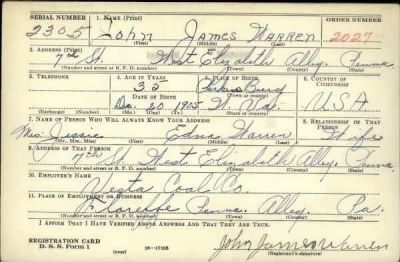 SERIAL NUMBER 1. NAME (Print) ORDER NUMBER
2305 John James Warren 2027
(First) (Middle) (Last)
2. ADDRESS (Print)
7th St. West Elizabeth Alleg. Penna
(Number and street or R. F. D. number) (Town) (County) (State)
3. TELEPHONE 4. AGE IN YEARS 5. PLACE OF BIRTH 6. COUNTRY OF CITIZENSHIP
35 Parkersburg
DATE OF BIRTH (Town or county)
Dec. 20 1905 W. Va. USA
(Exchange) (Number) (Mo.) (Day) (Yr.) (State or country)
7. NAME OF PERSON WHO WILL ALWAYS KNOW YOUR ADDRESS 8. RELATIONSHIP OF THAT PERSON
Mrs. Jessie Edna Warren Wife
(Mr., Mrs., Miss) (First) (Middle) (Last)
9. ADDRESS OF THAT PERSON
7th St. West Elizabeth Alleg. Penna
(Number and street or R. F. D. number) (Town) (County) (State)
10. EMPLOYER'S NAME
Vesta Coal Co.
11. PLACE OF EMPLOYMENT OR BUSINESS
Floreffe Penna. Alleg. Pa.
(Number and street or R. F. D. number) (Town) (County) (State)
I AFFIRM THAT I HAVE VERIFIED ABOVE ANSWERS AND THAT THEY ARE TRUE.
REGISTRATION CARD
D. S. S. Form 1 (over) John James Warren
(Registrant's signature)